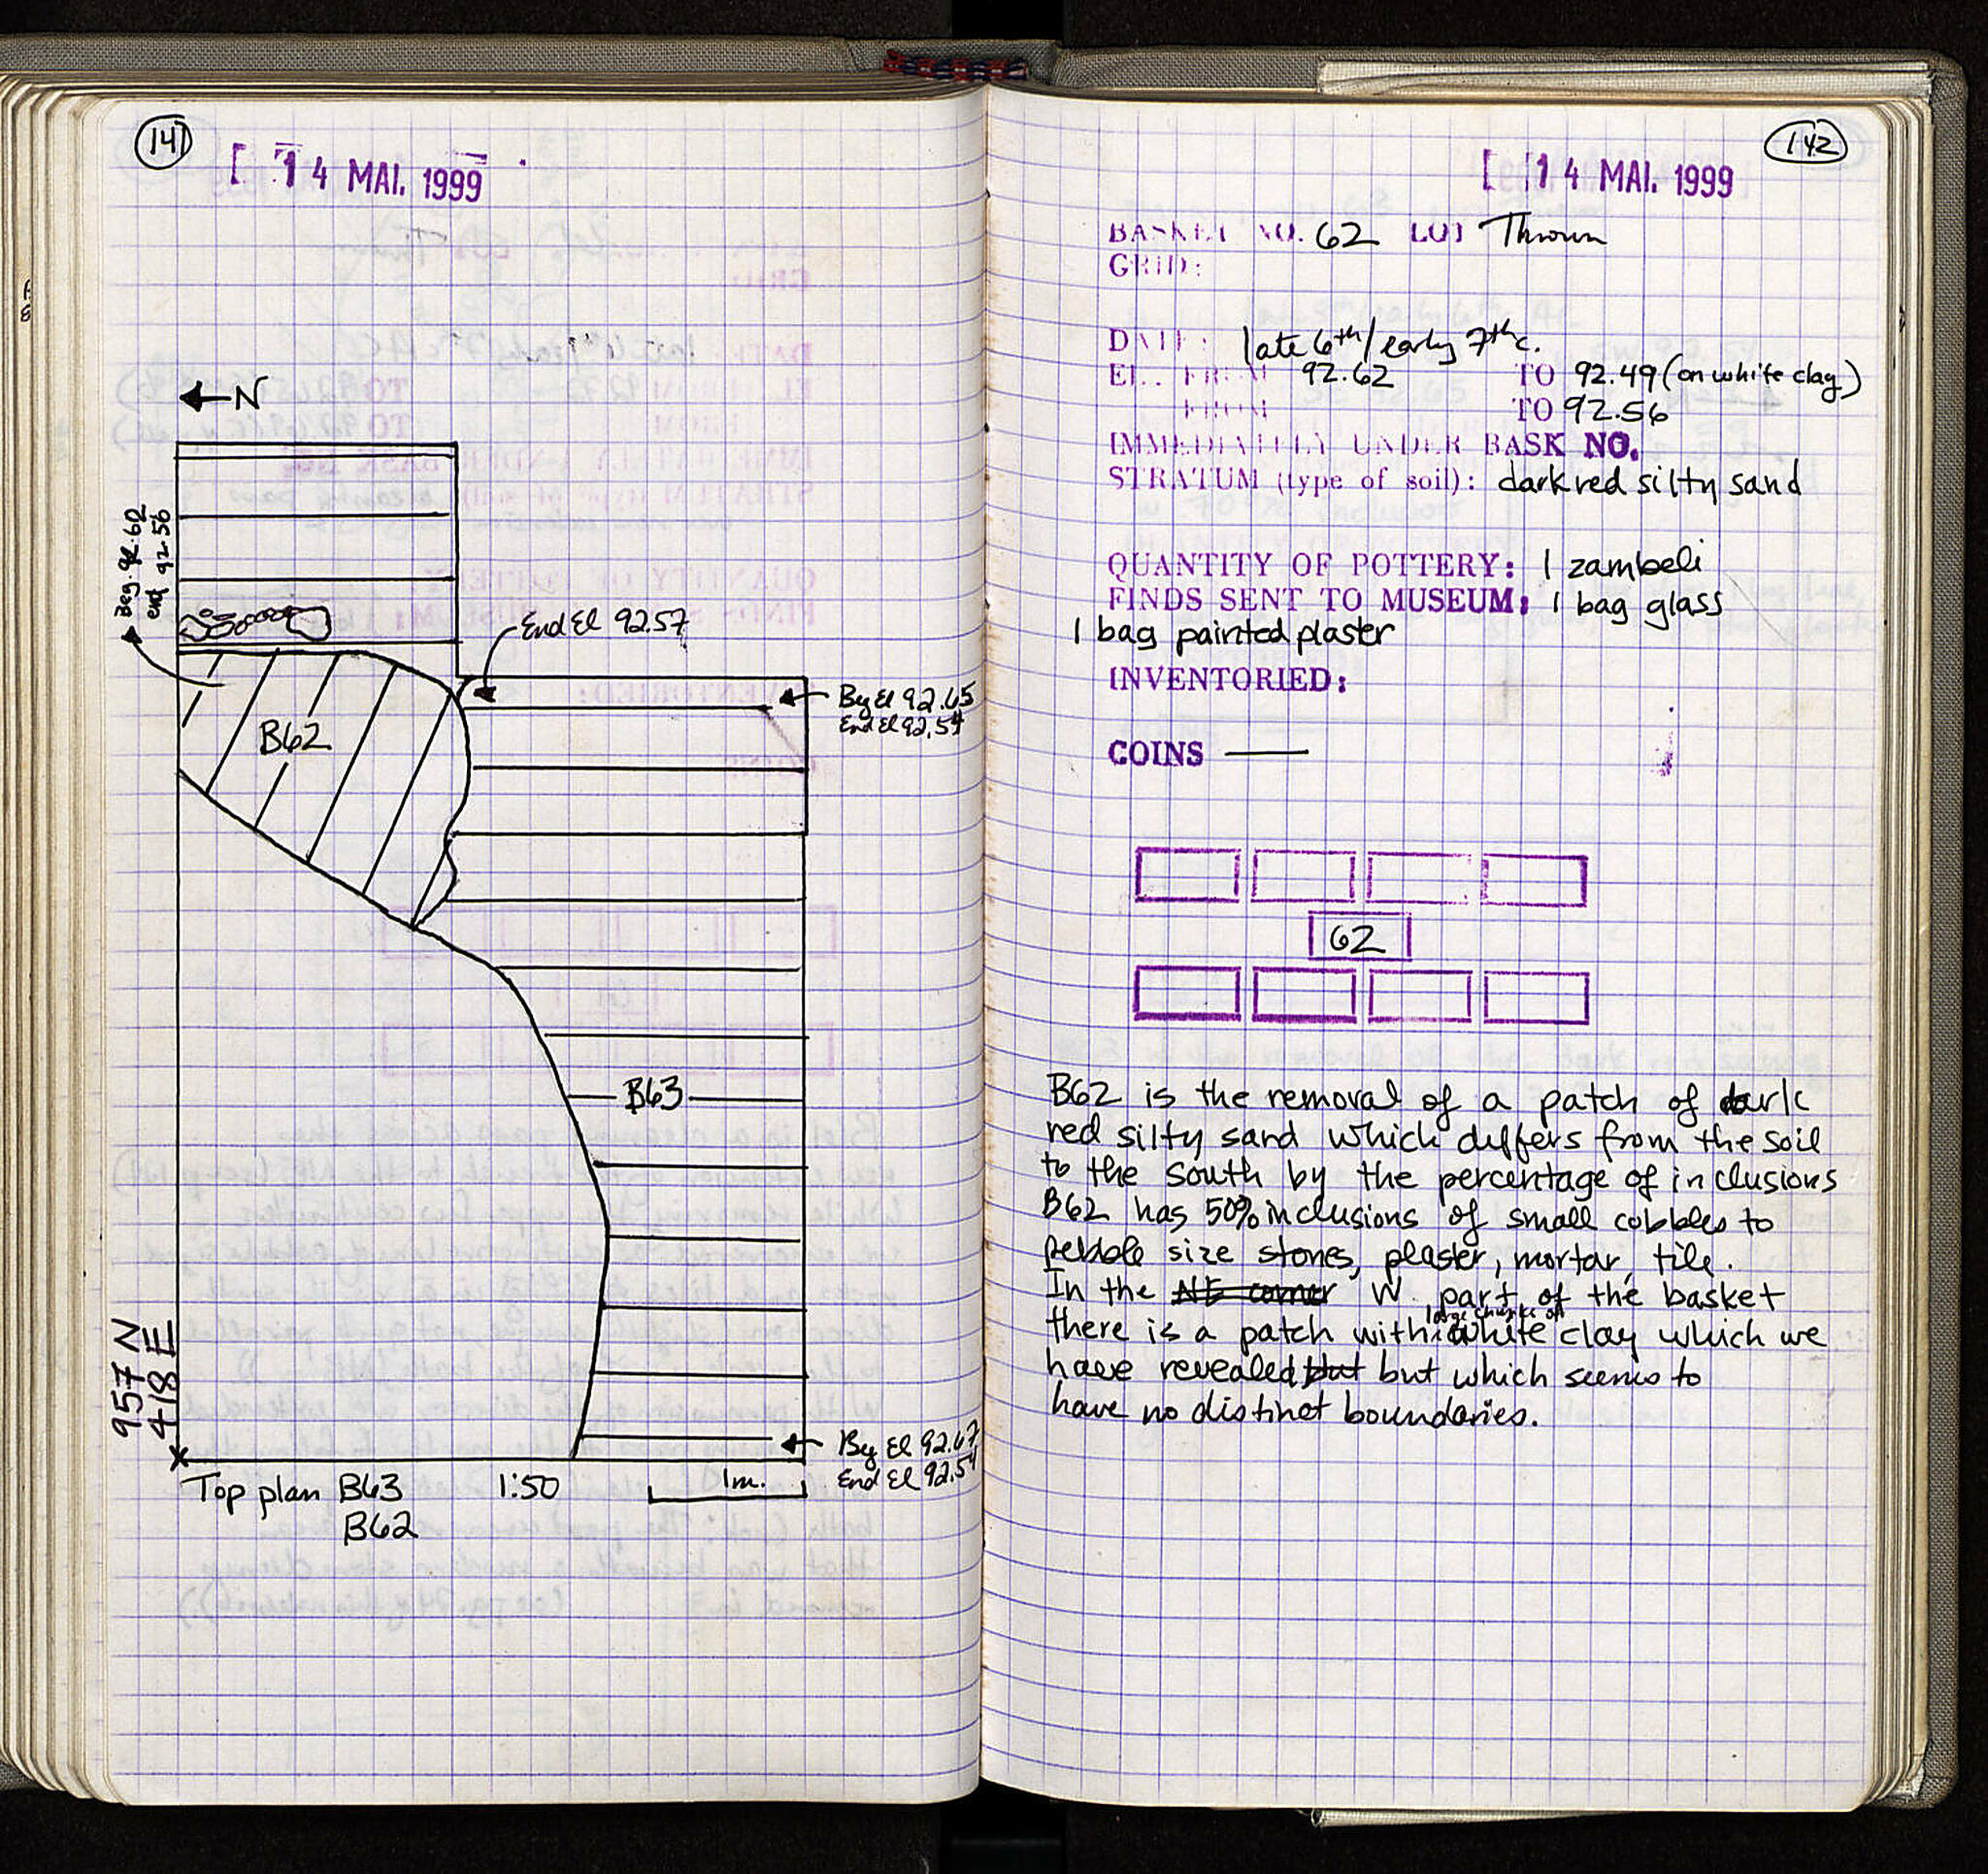 141
[ 14 MAI. 1999
←N
Beg. 92.62
end 92.56
End El 92.57
Beg El 92.65
End El 92.54
B62
B63
957 N
418 E
Beg El 92.67
End El 92.54
Top plan B63 1:50 1m.
B62
142
[ 14 MAI. 1999
BASKET NO. 62 LOT Thrown
GRID:
DATE: late 6th/early 7th c.
EL. FROM 92.62 TO 92.49 (on white clay)
FROM TO 92.56
IMMEDIATELY UNDER BASK NO.
STRATUM (type of soil): dark red silty sand
QUANTITY OF POTTERY: 1 zambeli
FINDS SENT TO MUSEUM: 1 bag glass
1 bag painted plaster
INVENTORIED:
COINS —
62
B62 is the removal of a patch of dark
red silty sand which differs from the soil
to the south by the percentage of inclusions
B62 has 50% inclusions of small cobbles to
pebble size stones, plaster, mortar, tile.
In the NE corner W. part of the basket
there is a patch with large chunks of white clay which we
have revealed but but which seems to
have no distinct boundaries.